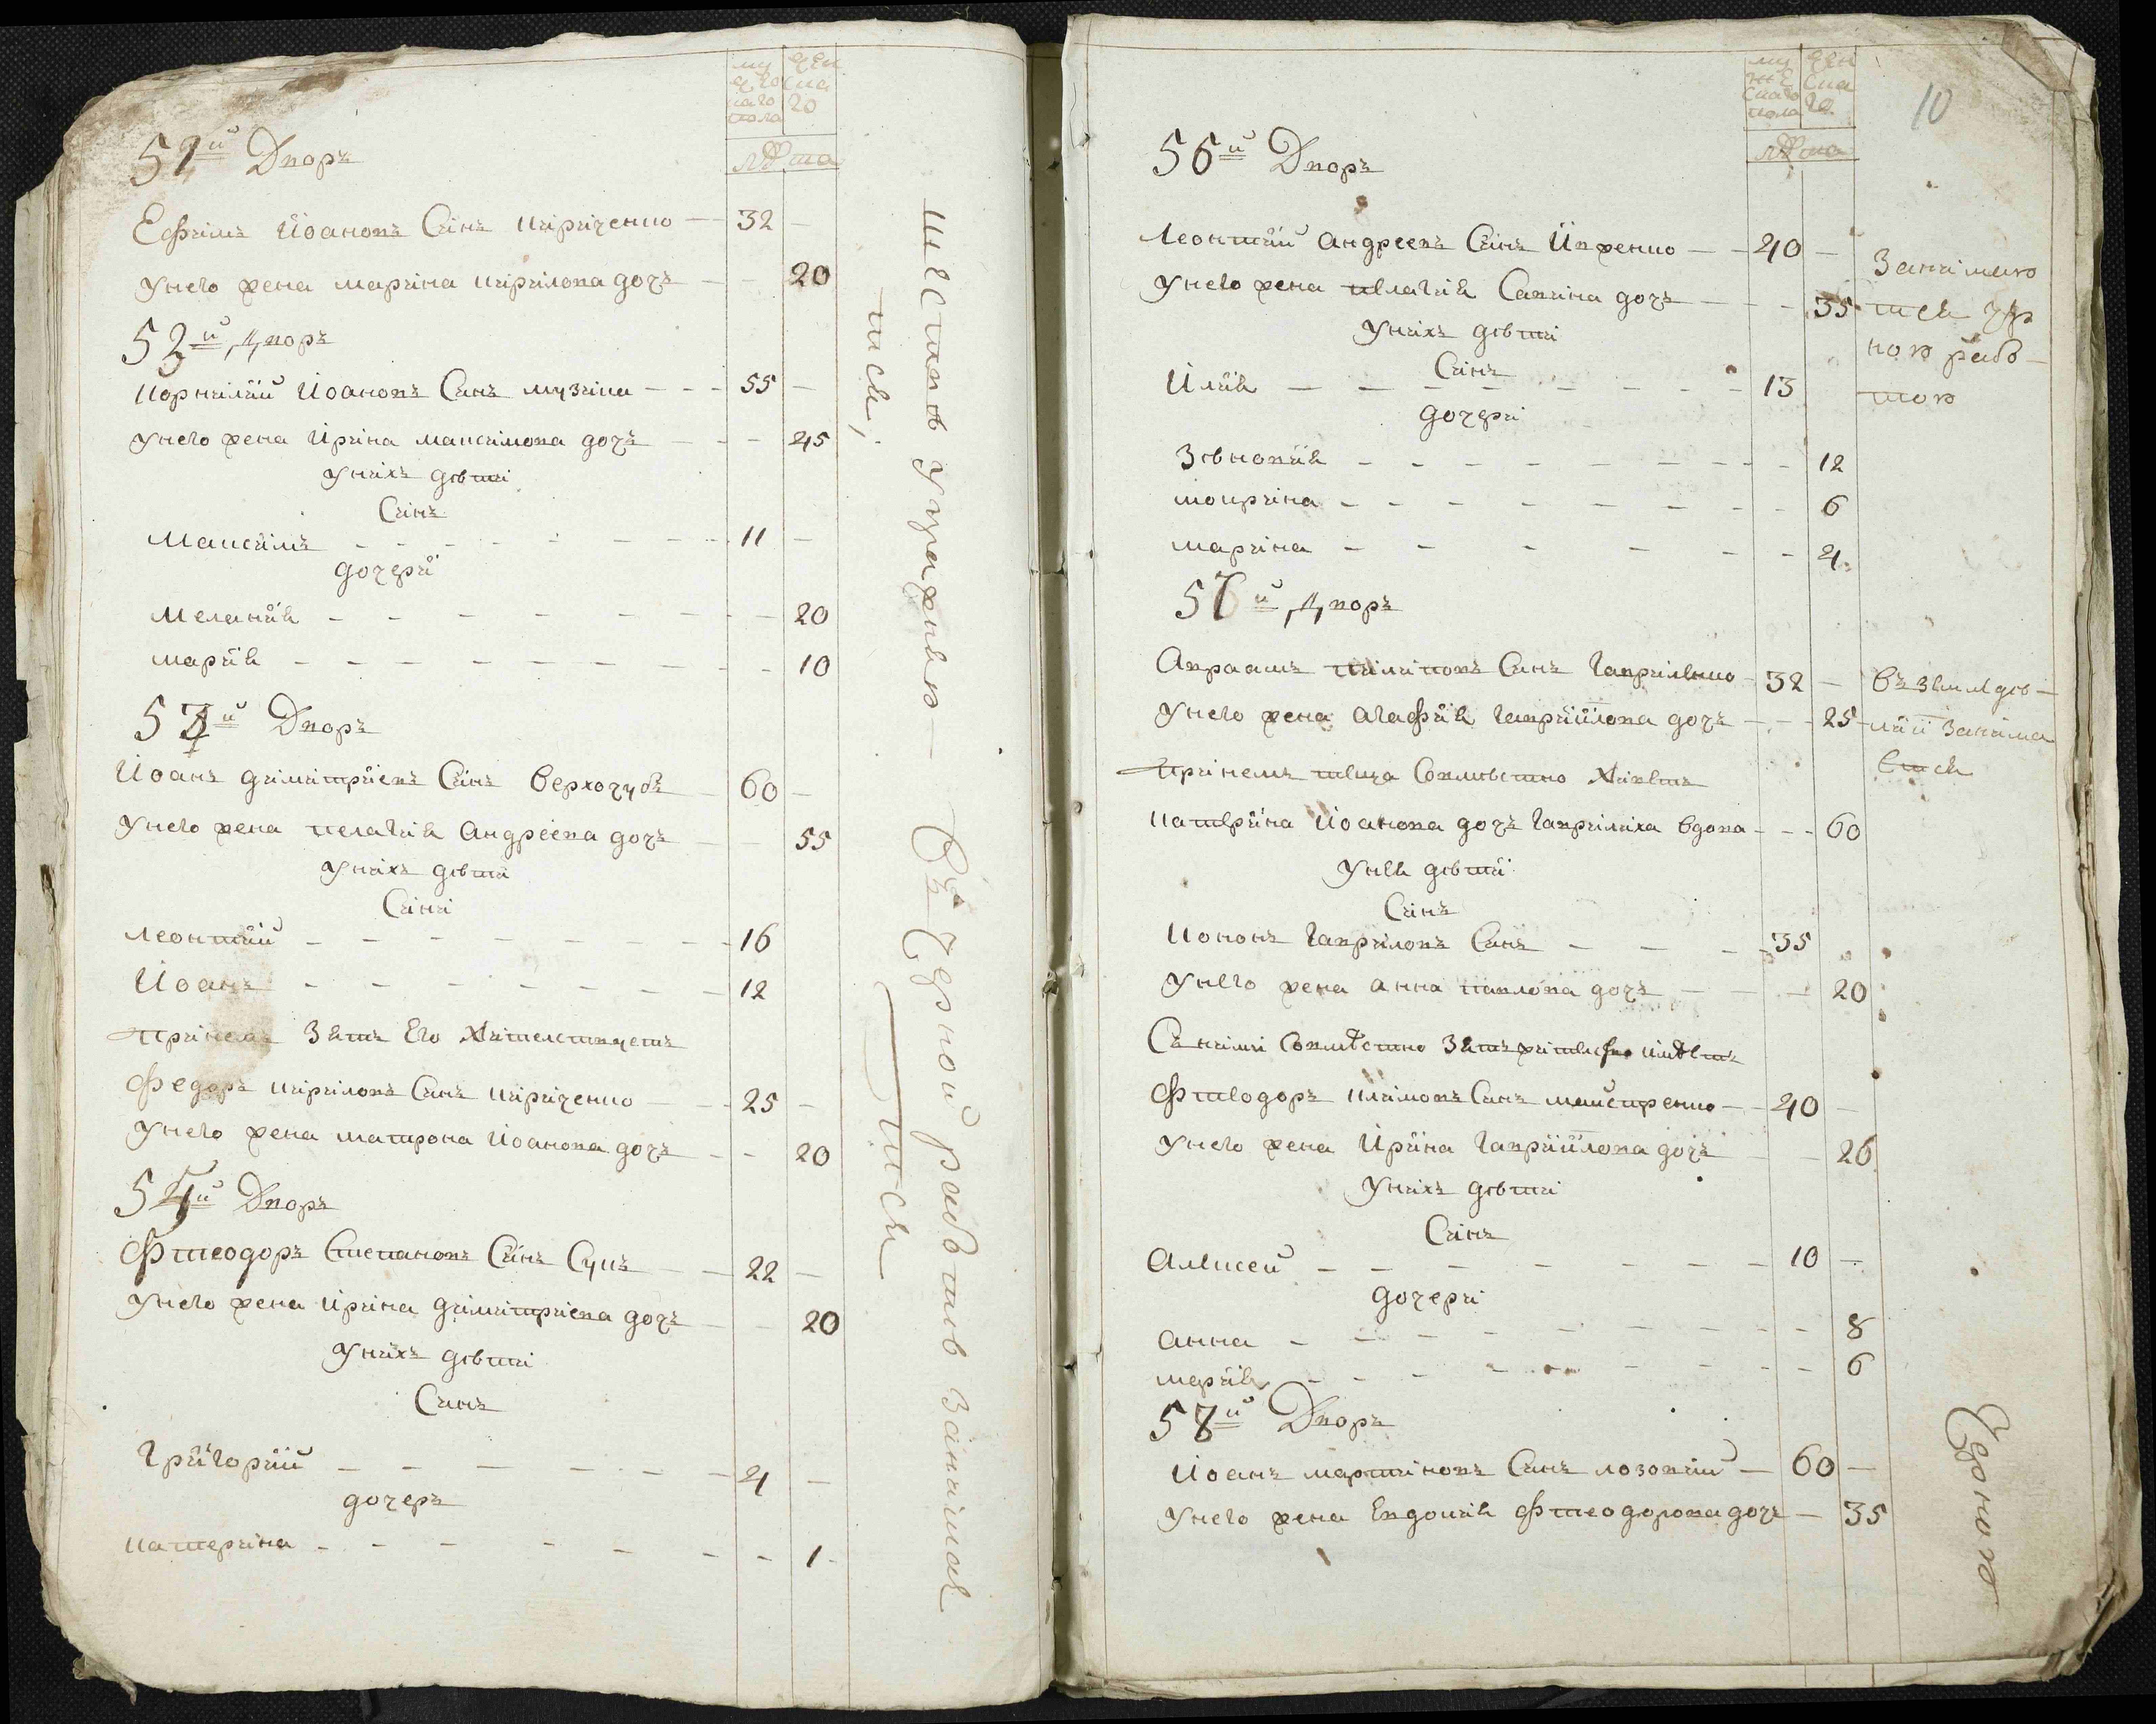 му
жес
каго
пола
жен
ска
го
лѣта
51й Дворъ
Ефимъ Иоановъ Синъ Кириченко — 32 —
Унего жена марина Кирилова дочъ — — 20
52й Дворъ
Корнилий Иоановъ Синъ музика — — — 55 —
Унего жена Ирина максимова дочъ — — — 45
Унихъ дѣти
Синъ
Максимъ — — — — — — — 11 —
дочери
Мелания — — — — — — — — 20
мария — — — — — — — — 10
53й Дворъ
Иоанъ димитриевъ Синъ Верхозубъ — 60 —
Унего жена пелагия Андреева дочъ — — 55
Унихъ дѣти
Сини
леонтий — — — — — — — — 16
Иоанъ — — — — — — — — 12
при немъ Зять Его Жителствуетъ
Федоръ кириловъ Синъ кириченко — — 25 —
Унего жена матрона Иоанова дочъ — — 20
54й Дворъ
Фтеодоръ Степановъ Синъ Сукъ — — 22 —
Унего жена ирина димитриева дочъ — — 20
Унихъ дѣти
Синъ
Григорий — — — — — — — 4 —
дочеръ
катерина — — — — — — — — 1
тся,
Въ Черной работѣ занимая
тся
му
же
скаго
пола
жен
ска
го
лѣта
10
56й Дворъ
Леонтий андреевъ Синъ Ивженко — — 40 —
Унего жена пелагия Савина дочъ — — — 35
Унихъ дѣти
Синъ
Илия — — — — — — — — 13
дочери
Зѣновия — — — — — — — — 12
мокрина — — — — — — — — 6
марина — — — — — — 4
Занимаю
тся чер
ною рабо—
тою
57й Дворъ
Авраамъ Филиповъ Синъ Гавриленко — 32 —
Унего жена агафия гавриилова дочъ — — — 25
при немъ теща Совмѣстно Живетъ
катерина Иоанова дочъ гаврилиха вдова — — — 60
Унея дѣти
Синъ
Кононъ Гавриловъ Синъ — — — — 35
Унего жена анна павлова дочъ — — — 20
Въ земледѣ—
лии занима
ется
Фтеодоръ климовъ Синъ — — 40 —
Унего жена Ирина гавриилова дочъ — — 26
Унихъ дѣти
Синъ
Алексей — — — — — — — 10 —
дочери
анна — — — — — — — — 8
мария — — — — — — — — 6
58й Дворъ
Иоанъ мартиновъ Синъ лозовий — 60 —
Унего жена Евдокия Фтеодорова дочъ — 35
Черною